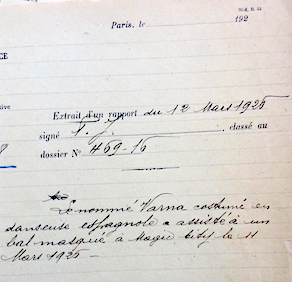 Paris, le
192
CE
Extrait d'un rapport du 12 Mars 1925
signé F. J. , classé au
dossier N° 469.15
Le nommé Varna costumé en
danseuse espagnole a assisté à un
bal masqué à Magic City le 11
Mars 1925 -